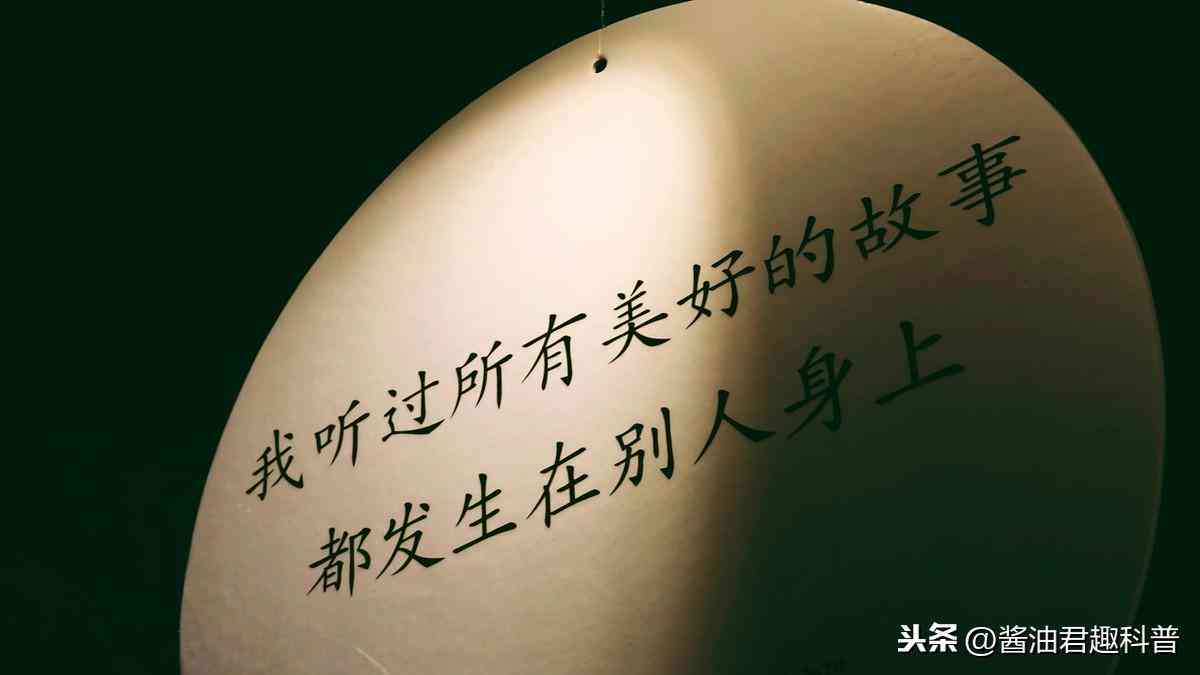 我听过所有美好的故事
都发生在别人身上
头条 @酱油君趣科普